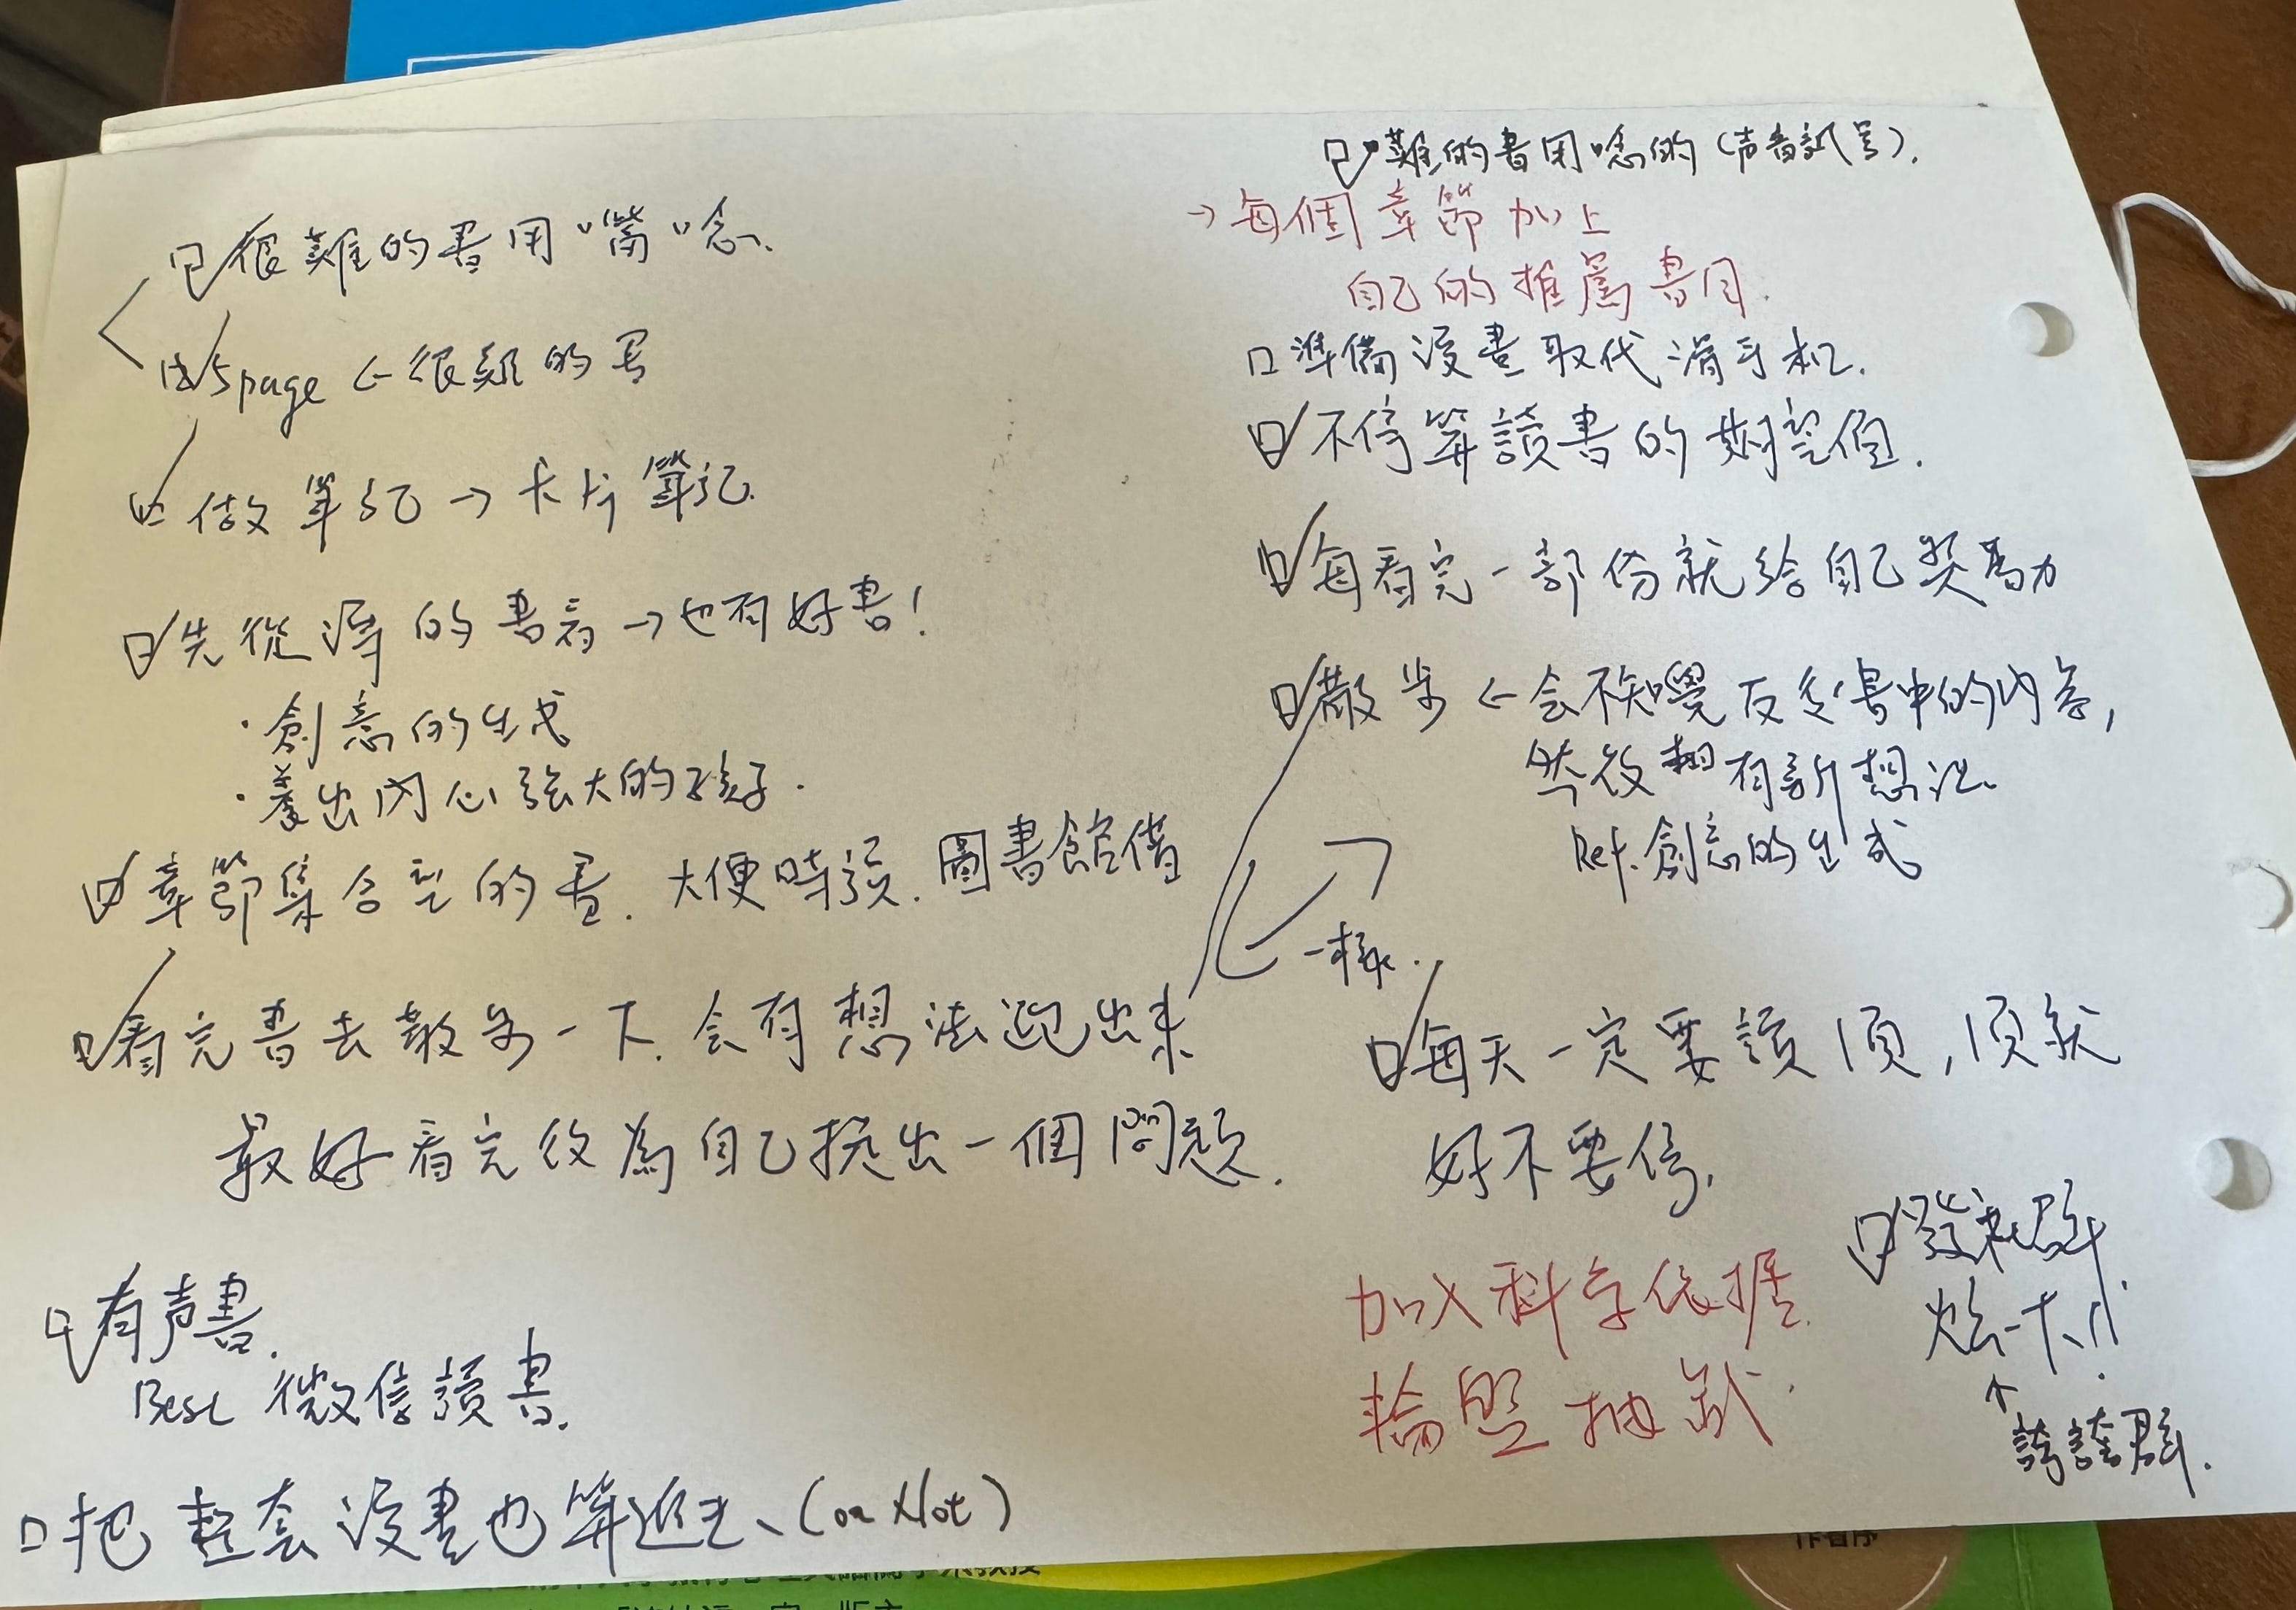 很難的書用"嘴"唸、
5page ← 很難的書
做筆記 → 卡片筆記
先從薄的書看 → 也有好書！
・創意的生成
・養出內心強大的孩子.
章節集合型的書. 大便時讀. 圖書館借
看完書去散步一下. 会有想法跑出來
最好看完後為自己提出一個問題.
有声書.
Best 微信讀書.
把整套漫畫也算進去、(or Not)
難的書用唸的 (声音訊号).
→ 每個章節加上
自己的推薦書目.
準備漫畫取代滑手机.
不停算讀書的期望值.
每看完一部份就給自己獎勵
散步 ← 会不知覺反芻書中的內容,
然後有新想法.
Ref. 創意的生成
一樣.
每天一定要讀1頁, 1頁就
好不要停.
加入科学依據.
輪盤抽籤.
發社群.
炫一下!!
↑
誇誇群.